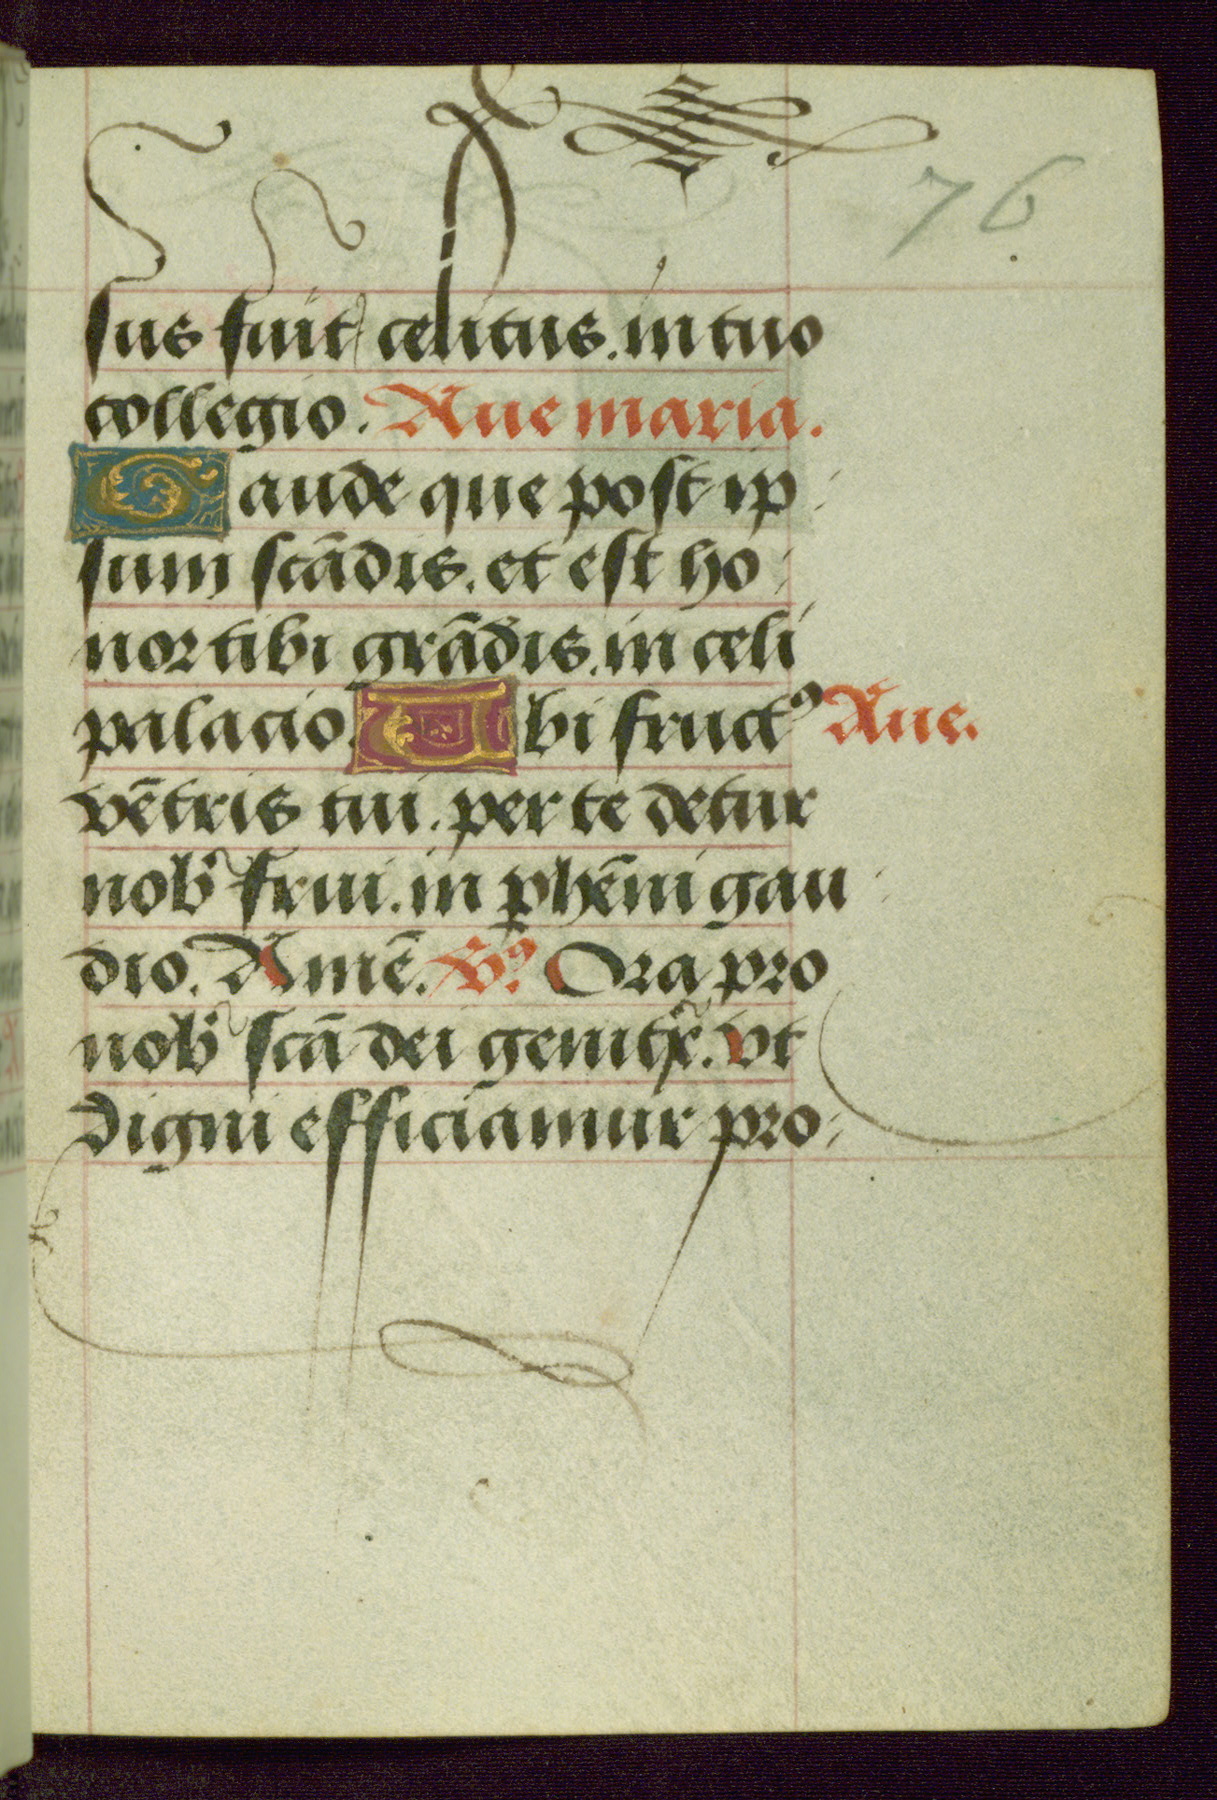 76
sus fuit celitus. in tuo
collegio. Aue maria.
Gaude que post ip
sum scādis. et est ho
nor tibi grādis. in celi
palacio. Vbi fructꝰ Aue.
vētris tui. per te detur
nob̉ frui. in ꝑhēni gau
dio. Amē. V̉ꝰ. Ora pro
nob̉ scā dei genitx̉. vt
digni efficiamur pro